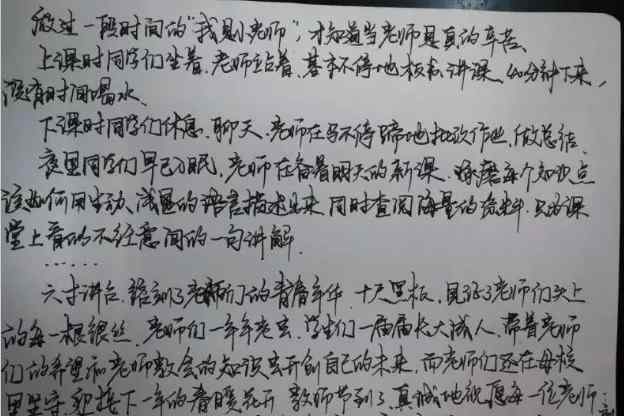 做过一段时间的“我是小老师”，才知道当老师是真的辛苦、
上课时同学们坐着，老师站着，基本不停地板书、讲课，40分钟下来，
没有时间喝水、
下课时同学们休息、聊天，老师在马不停蹄地批改作业，做总结、
夜里同学们早已入眠，老师在备着明天的新课，琢磨每个知识点
该如何用生动、浅显的语言描述出来，同时查阅海量的资料，只为课
堂上看似不经意间的一句讲解、
……
六寸讲台，镌刻了老师们的青春年华，十尺黑板，见证了老师们头上
的每一根银丝、老师们一年年老去，学生们一届届长大成人，带着老师
们的希望和老师教会的知识去开创自己的未来，而老师们还在母校
里坚守，迎接下一年的春暖花开、教师节到了，真诚地祝愿每一位老师